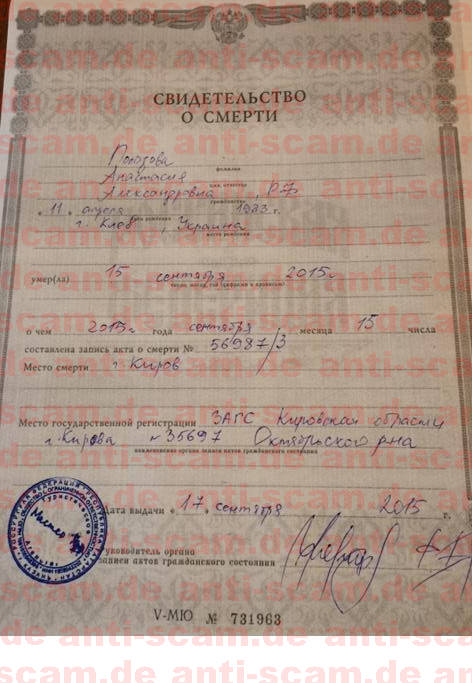 СВИДЕТЕЛЬСТВО
О СМЕРТИ
фамилия
Анастасия
имя, отчество
Александровна, РФ
гражданство
" 11 " апреля 1983 г.
дата рождения
г. Киев, Украина
место рождения
умер(ла) 15 сентября 2015г.
число, месяц, год (цифрами и прописью)
о чем 2015г. года сентября месяца 15 числа
составлена запись акта о смерти № 56987/3
Место смерти г. Киров
Место государственной регистрации ЗАГС Кировской области
г. Кирова №35697 Октябрьского р-на
наименование органа записи актов гражданского состояния
Дата выдачи « 17 » сентября 2015 г.
Руководитель органа
записи актов гражданского состояния
V-МЮ № 731963
anti-scam.de